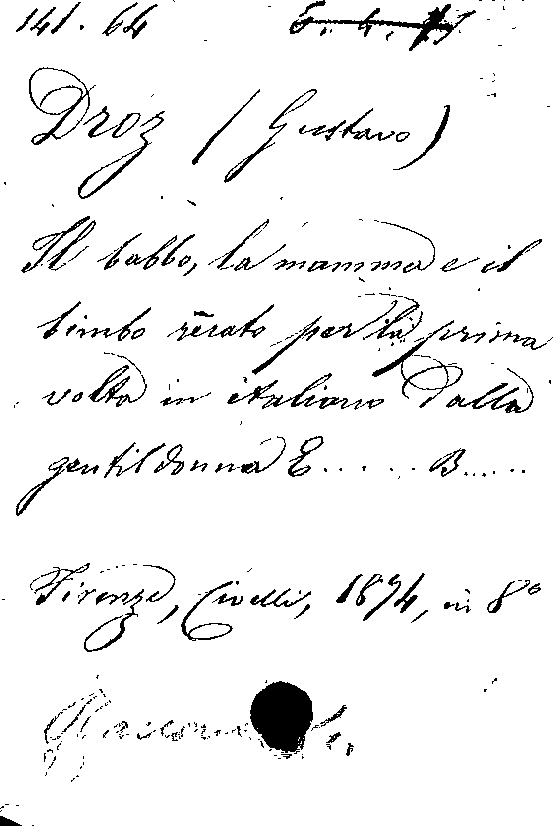 141. 64 5. 4. 11
Droz (Gustavo)
Il babbo, la mamma e il
bimbo recato per la prima
volta in italiano dalla
gentildonna E...... B.....
Firenze, Civelli, 1874, in 8º